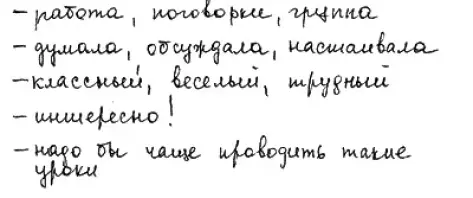 – работа, поговорки, группа
– думала, обсуждала, настаивала
– классный, веселый, трудный
– интересно!
– надо бы чаще проводить такие
уроки